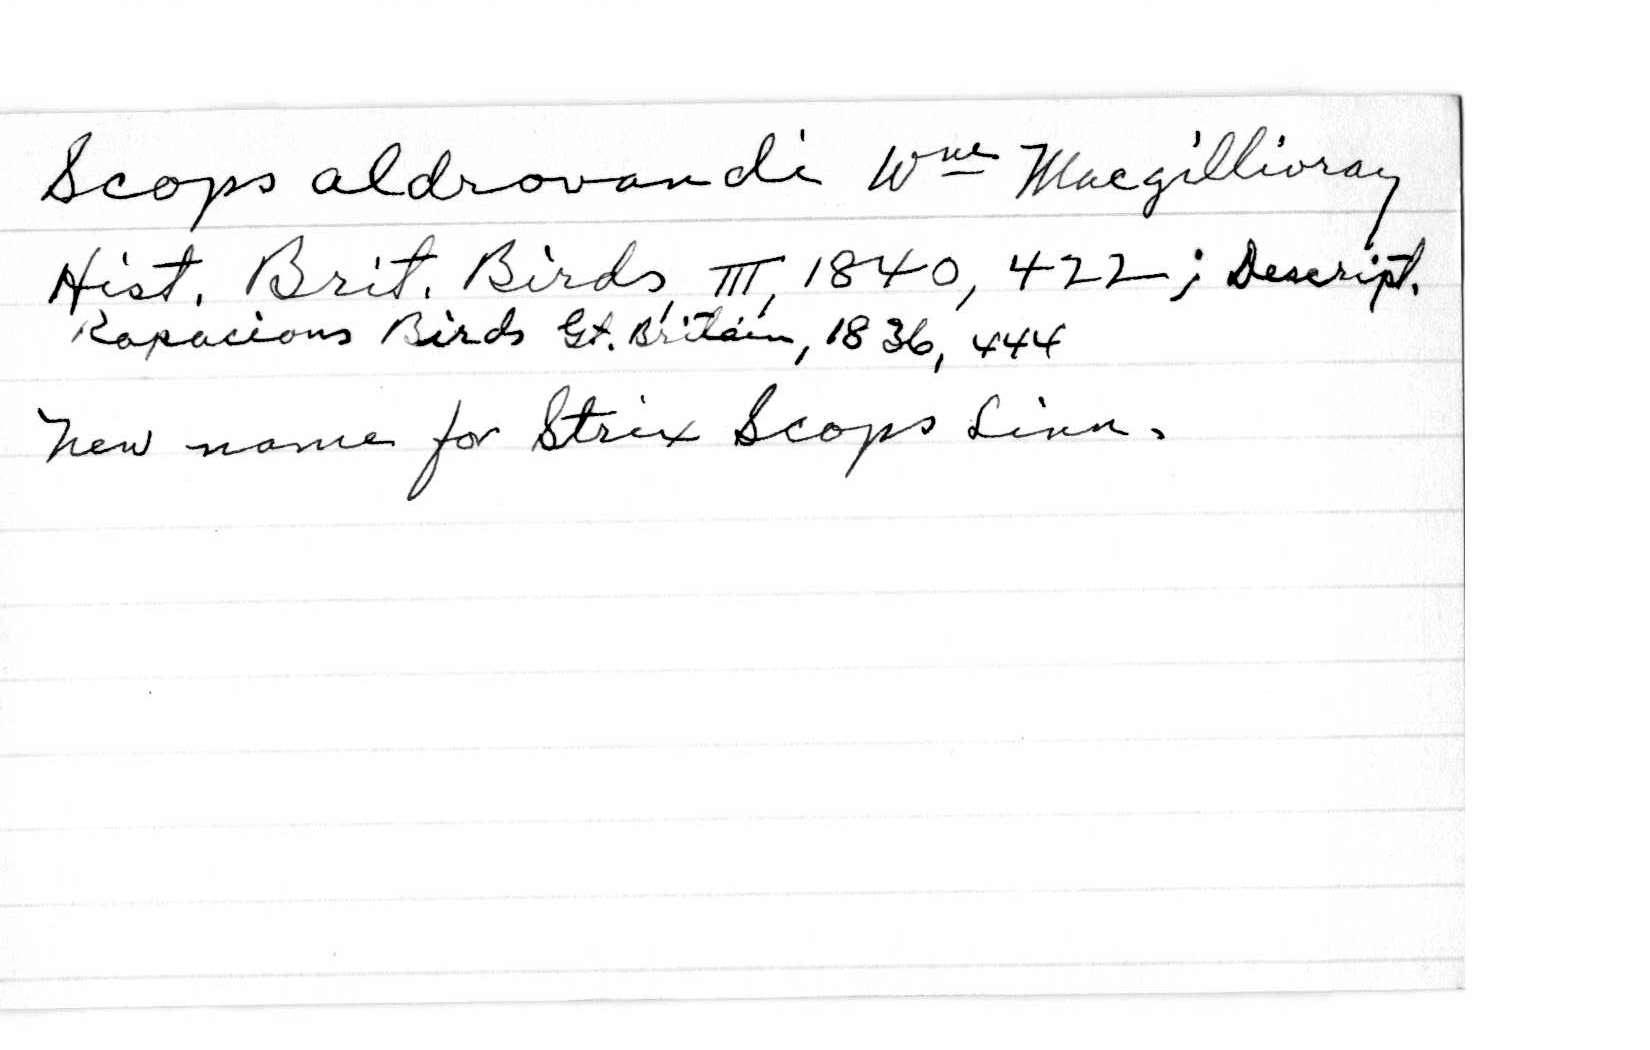 Scops aldrovandi Wm Macgillivray
Hist. Brit. Birds, III, 1840, 422; Descript.
Rapacious Birds Gt. Britain, 1836, 444
New name for Strix Scops Linn.